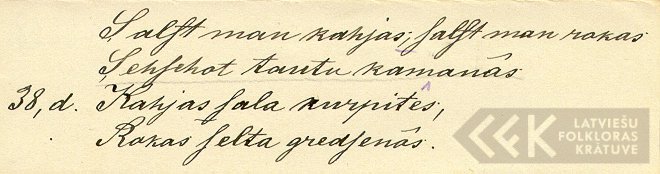 Salst man kahjas; salst man rokas
Sehschot tautu kamanâs
38, d. Kahjas sala kurpites,
Rokas selta gredsenâs.
LATVIEŠU
FOLKLORAS
KRĀTUVE